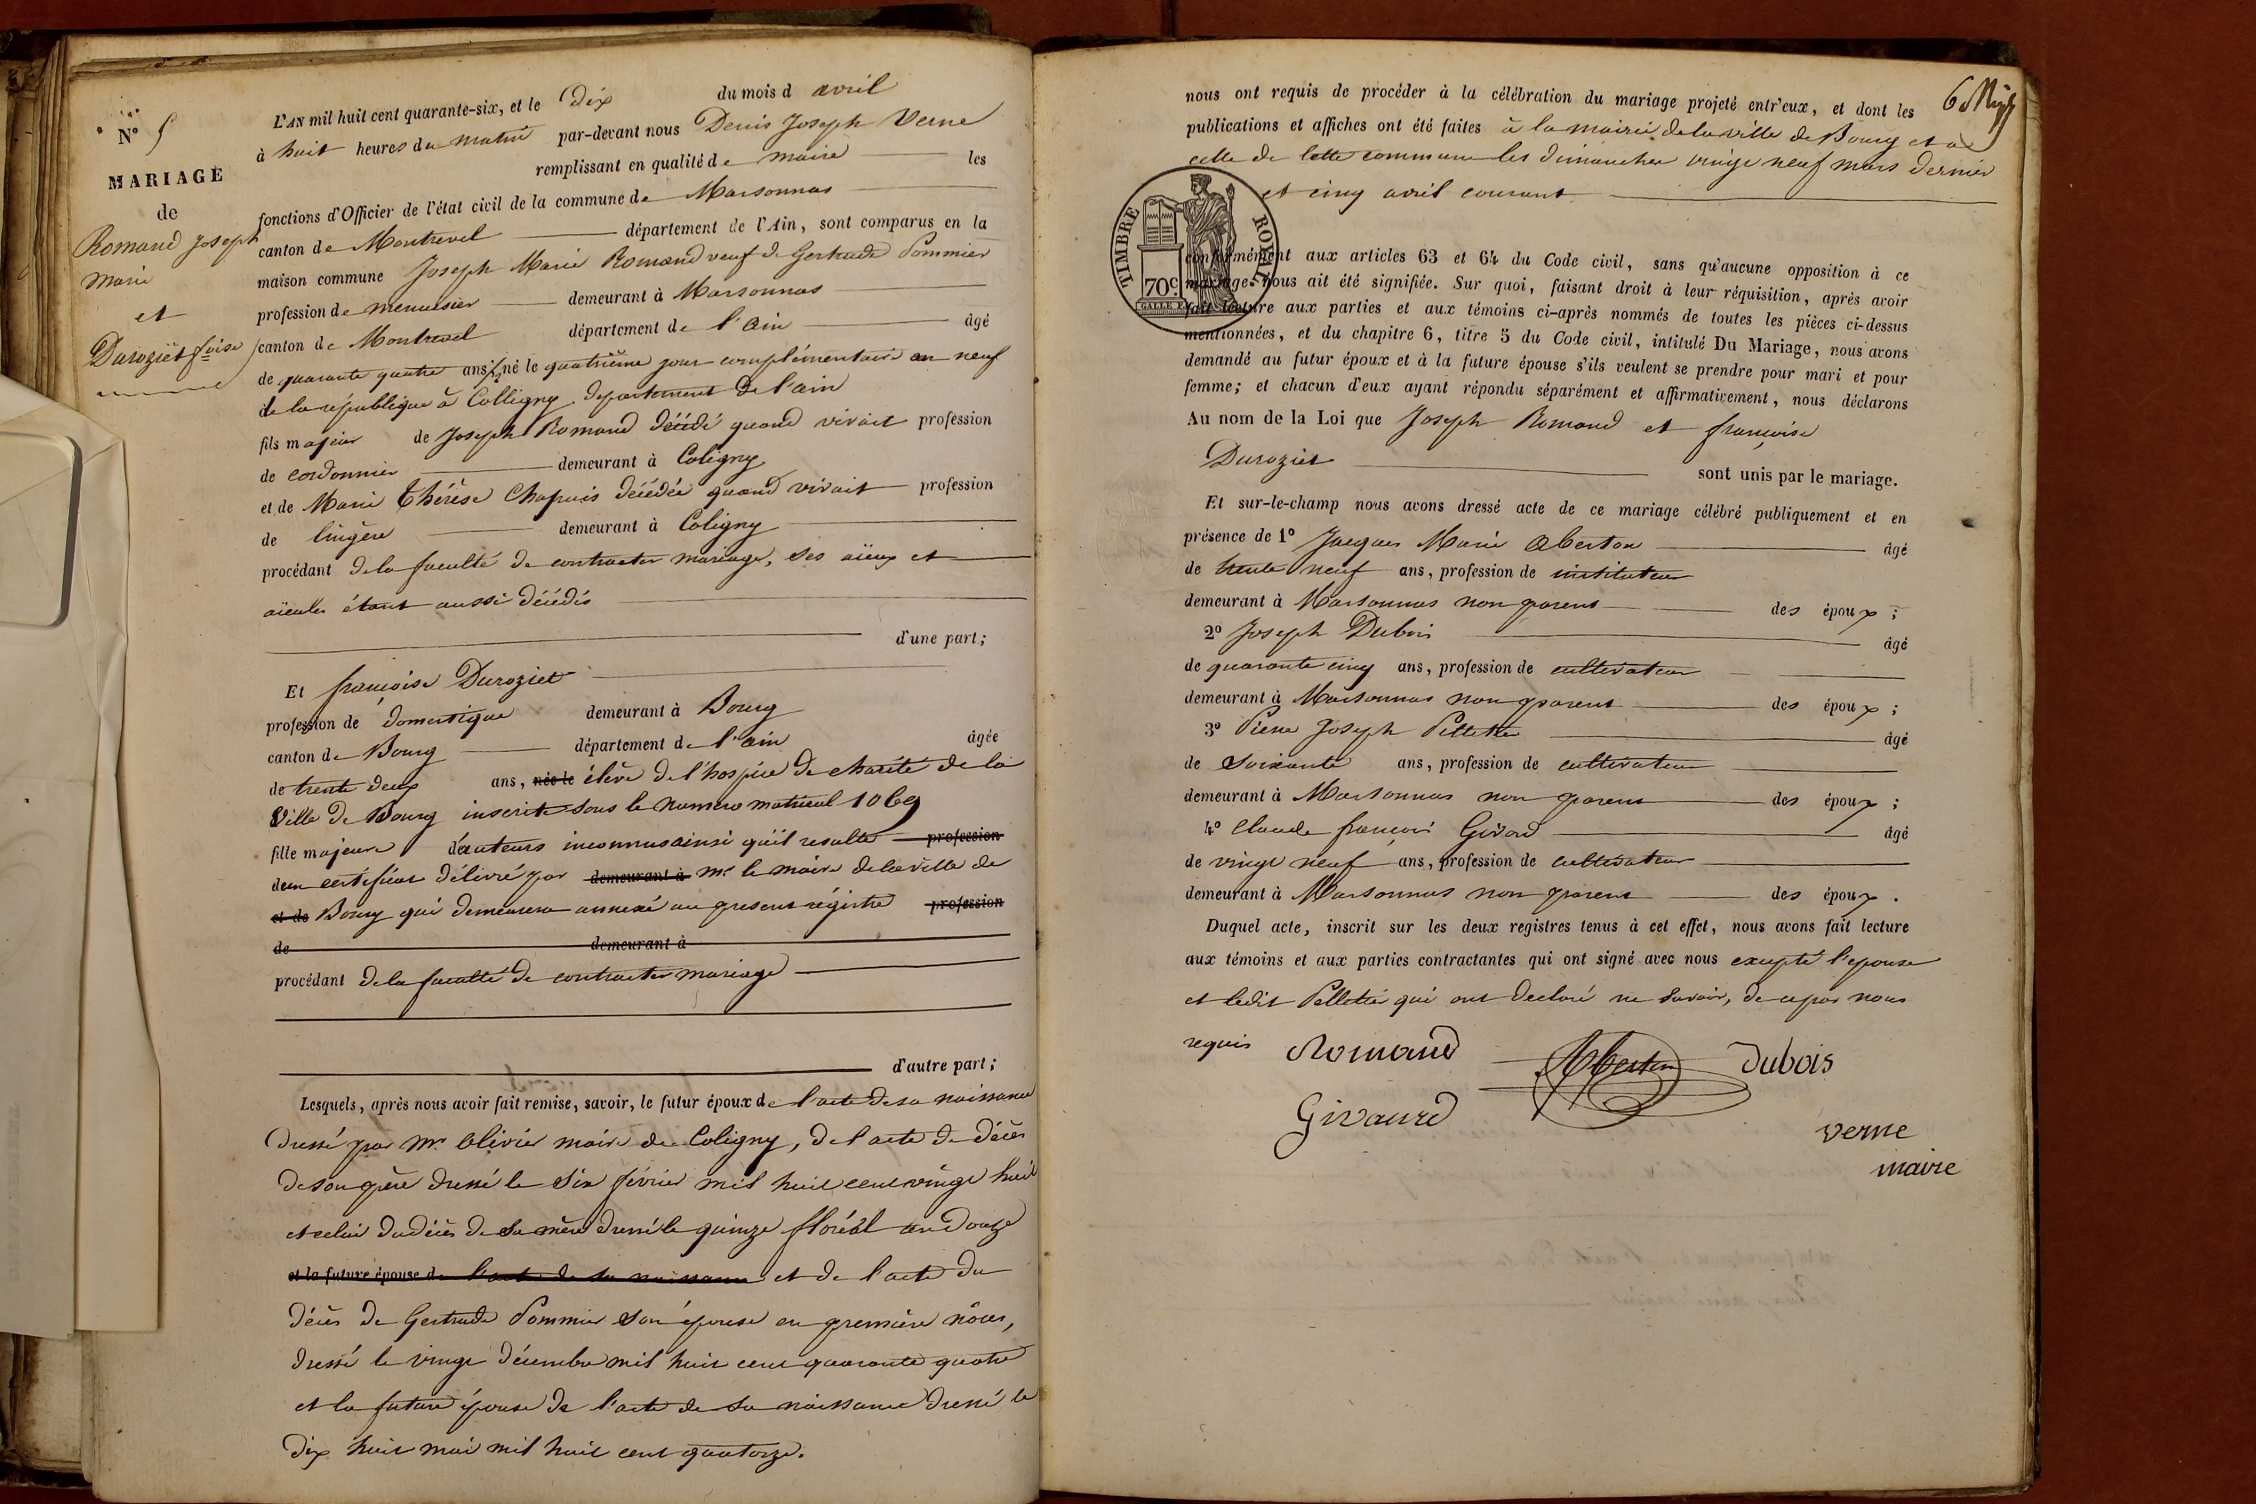 N° 5
MARIAGE
de
Romand Joseph
Marie
et
Duroziet foise
L'AN mil huit cent quarante-six, et le Dix du mois d avril
à huit heures du matin par-devant nous Denis Joseph Verne
remplissant en qualité de maire les
fonctions d'Officier de l'état civil de la commune de Marsonnas
canton de Montrevel département de l'Ain, sont comparus en la
maison commune Joseph Marie Romand veuf de Gertrude Pommier
profession de menuisier demeurant à Marsonnas
canton de Montrevel département de l'ain âgé
de quarante quatre ans 1/2 né le quatrième jour complémentaire an neuf
de la république à Colligny département de l'ain
fils majeur de Joseph Romand décédé quand vivait profession
de cordonnier demeurant à Coligny
et de Marie Thérèse Chapuis décédée quand vivait profession
de lingère demeurant à Coligny
procédant de la faculté de contracter mariage, ses aïeux et
aïeules étant aussi décédés
d'une part;
Et françoise Duroziet
profession de domestique demeurant à Bourg
canton de Bourg département de l'ain âgée
de trente deux ans, née le élève de l'hospice de charité de la
Ville de Bourg inscrite sous le numero matricul 1069
fille majeure d'auteurs inconnus ainsi qu'il resulte profession
d'un certificat délivré par demeurant à mr le maire de la ville de
et de Bourg qui demeurera annexé au present régistre profession
de demeurant à
procédant de la faculté de contracter mariage
d'autre part;
Lesquels, après nous avoir fait remise, savoir, le futur époux de l'acte de sa naissance
dressé par Mr. Olivier maire de Coligny, de l'acte de décès
de son père dressé le six février mil huit cent vingt huit
et celui du décès de sa mère dressé le quinze floréal an douze
et la future épouse de l'acte de sa naissance et de l'acte du
décès de Gertrude Pommier son épouse en première nôces,
dressé le vingt décembre mil huit cent quarante quatre
et la future épouse de l'acte de sa naissance dressé le
dix huit mai mil huit cent quatorze.
6
nous ont requis de procéder à la célébration du mariage projeté entr'eux, et dont les
publications et affiches ont été faites à la mairie de la ville de Bourg et à
celle de cette commune les dimanches vingt neuf mars dernier
et cinq avril courant
TIMBRE ROYAL
70c
conformément aux articles 63 et 64 du Code civil, sans qu'aucune opposition à ce
mariage nous ait été signifiée. Sur quoi, faisant droit à leur réquisition, après avoir
fait lecture aux parties et aux témoins ci-après nommés de toutes les pièces ci-dessus
mentionnées, et du chapitre 6, titre 5 du Code civil, intitulé Du Mariage, nous avons
demandé au futur époux et à la future épouse s'ils veulent se prendre pour mari et pour
femme; et chacun d'eux ayant répondu séparément et affirmativement, nous déclarons
Au nom de la Loi que Joseph Romand et françoise
Duroziet sont unis par le mariage.
Et sur-le-champ nous avons dressé acte de ce mariage célébré publiquement et en
présence de 1° Jacques Marie Oberton âgé
de trente neuf ans, profession de instituteur
demeurant à Marsonnas non parent des époux ;
2° Joseph Dubois âgé
de quarante cinq ans, profession de cultivateur
demeurant à Marsonnas non parent des époux ;
3° Pierre Joseph Pelletier âgé
de soixante ans, profession de cultivateur
demeurant à Marsonnas non parent des époux ;
4° Claude françois Givord âgé
de vingt neuf ans, profession de cultivateur
demeurant à Marsonnas non parent des époux .
Duquel acte, inscrit sur les deux registres tenus à cet effet, nous avons fait lecture
aux témoins et aux parties contractantes qui ont signé avec nous excepté l'epouse
et ledit Pelletier qui ont declaré ne savoir, de ce par nous
requis Romand Dubois
Givaurd
verne
maire